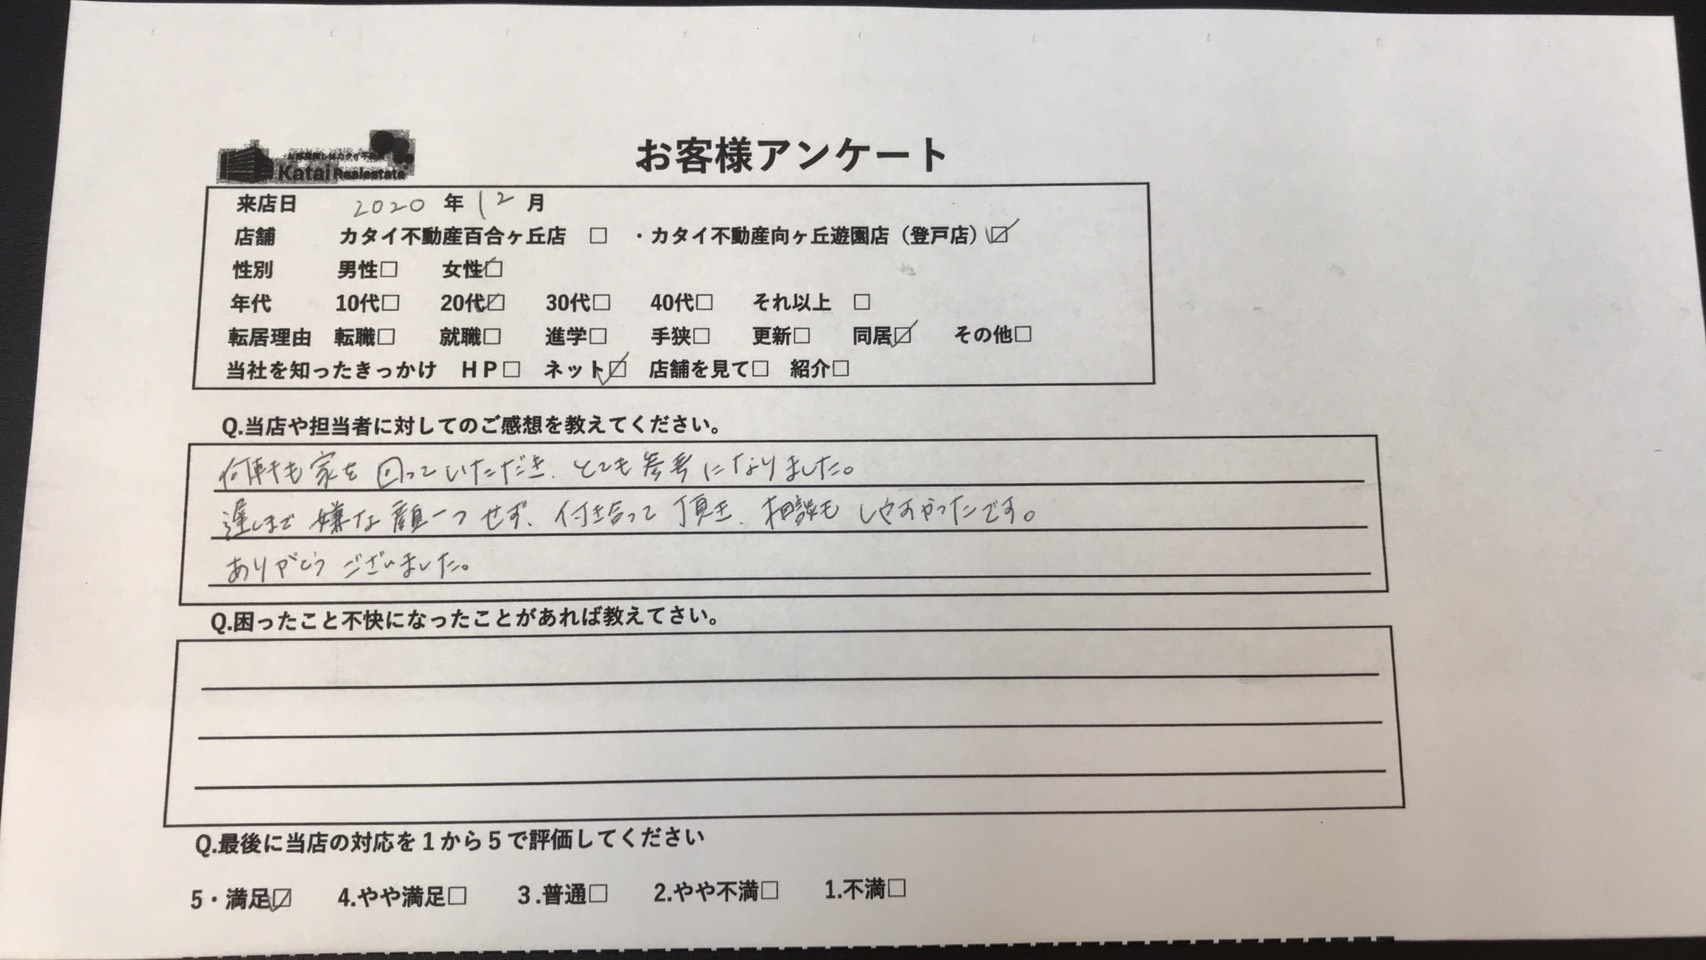 Katai Realestate
お客様アンケート
来店日 2020 年 12 月
店舗 カタイ不動産百合ヶ丘店 □ ・カタイ不動産向ヶ丘遊園店（登戸店）☑
性別 男性□ 女性☑
年代 10代□ 20代☑ 30代□ 40代□ それ以上 □
転居理由 転職□ 就職□ 進学□ 手狭□ 更新□ 同居☑ その他□
当社を知ったきっかけ ＨＰ□ ネット☑ 店舗を見て□ 紹介□
Q.当店や担当者に対してのご感想を教えてください。
何件も家を回っていただき、とても参考になりました。
遅くまで嫌な顔一つせず、付き合って頂き、相談もしやすかったです。
ありがとうございました。
Q.困ったこと不快になったことがあれば教えてさい。
Q.最後に当店の対応を１から５で評価してください
5・満足☑ 4.やや満足□ ３.普通□ 2.やや不満□ 1.不満□